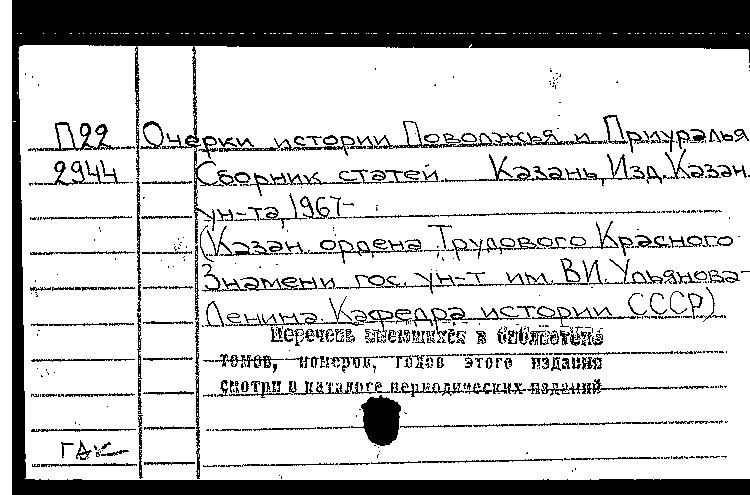 П22 Очерки истории Поволжья и Приуралья
2944 Сборник статей. Казань, Изд. Казан.
ун-та, 1967-
(Казан. ордена Трудового Красного
Знамени гос. ун-т им. В.И. Ульянова-
Ленина. Кафедра истории СССР)
Перечень имеющихся в библиотеке
томов, номеров, годов этого издания
смотри в каталоге периодических изданий